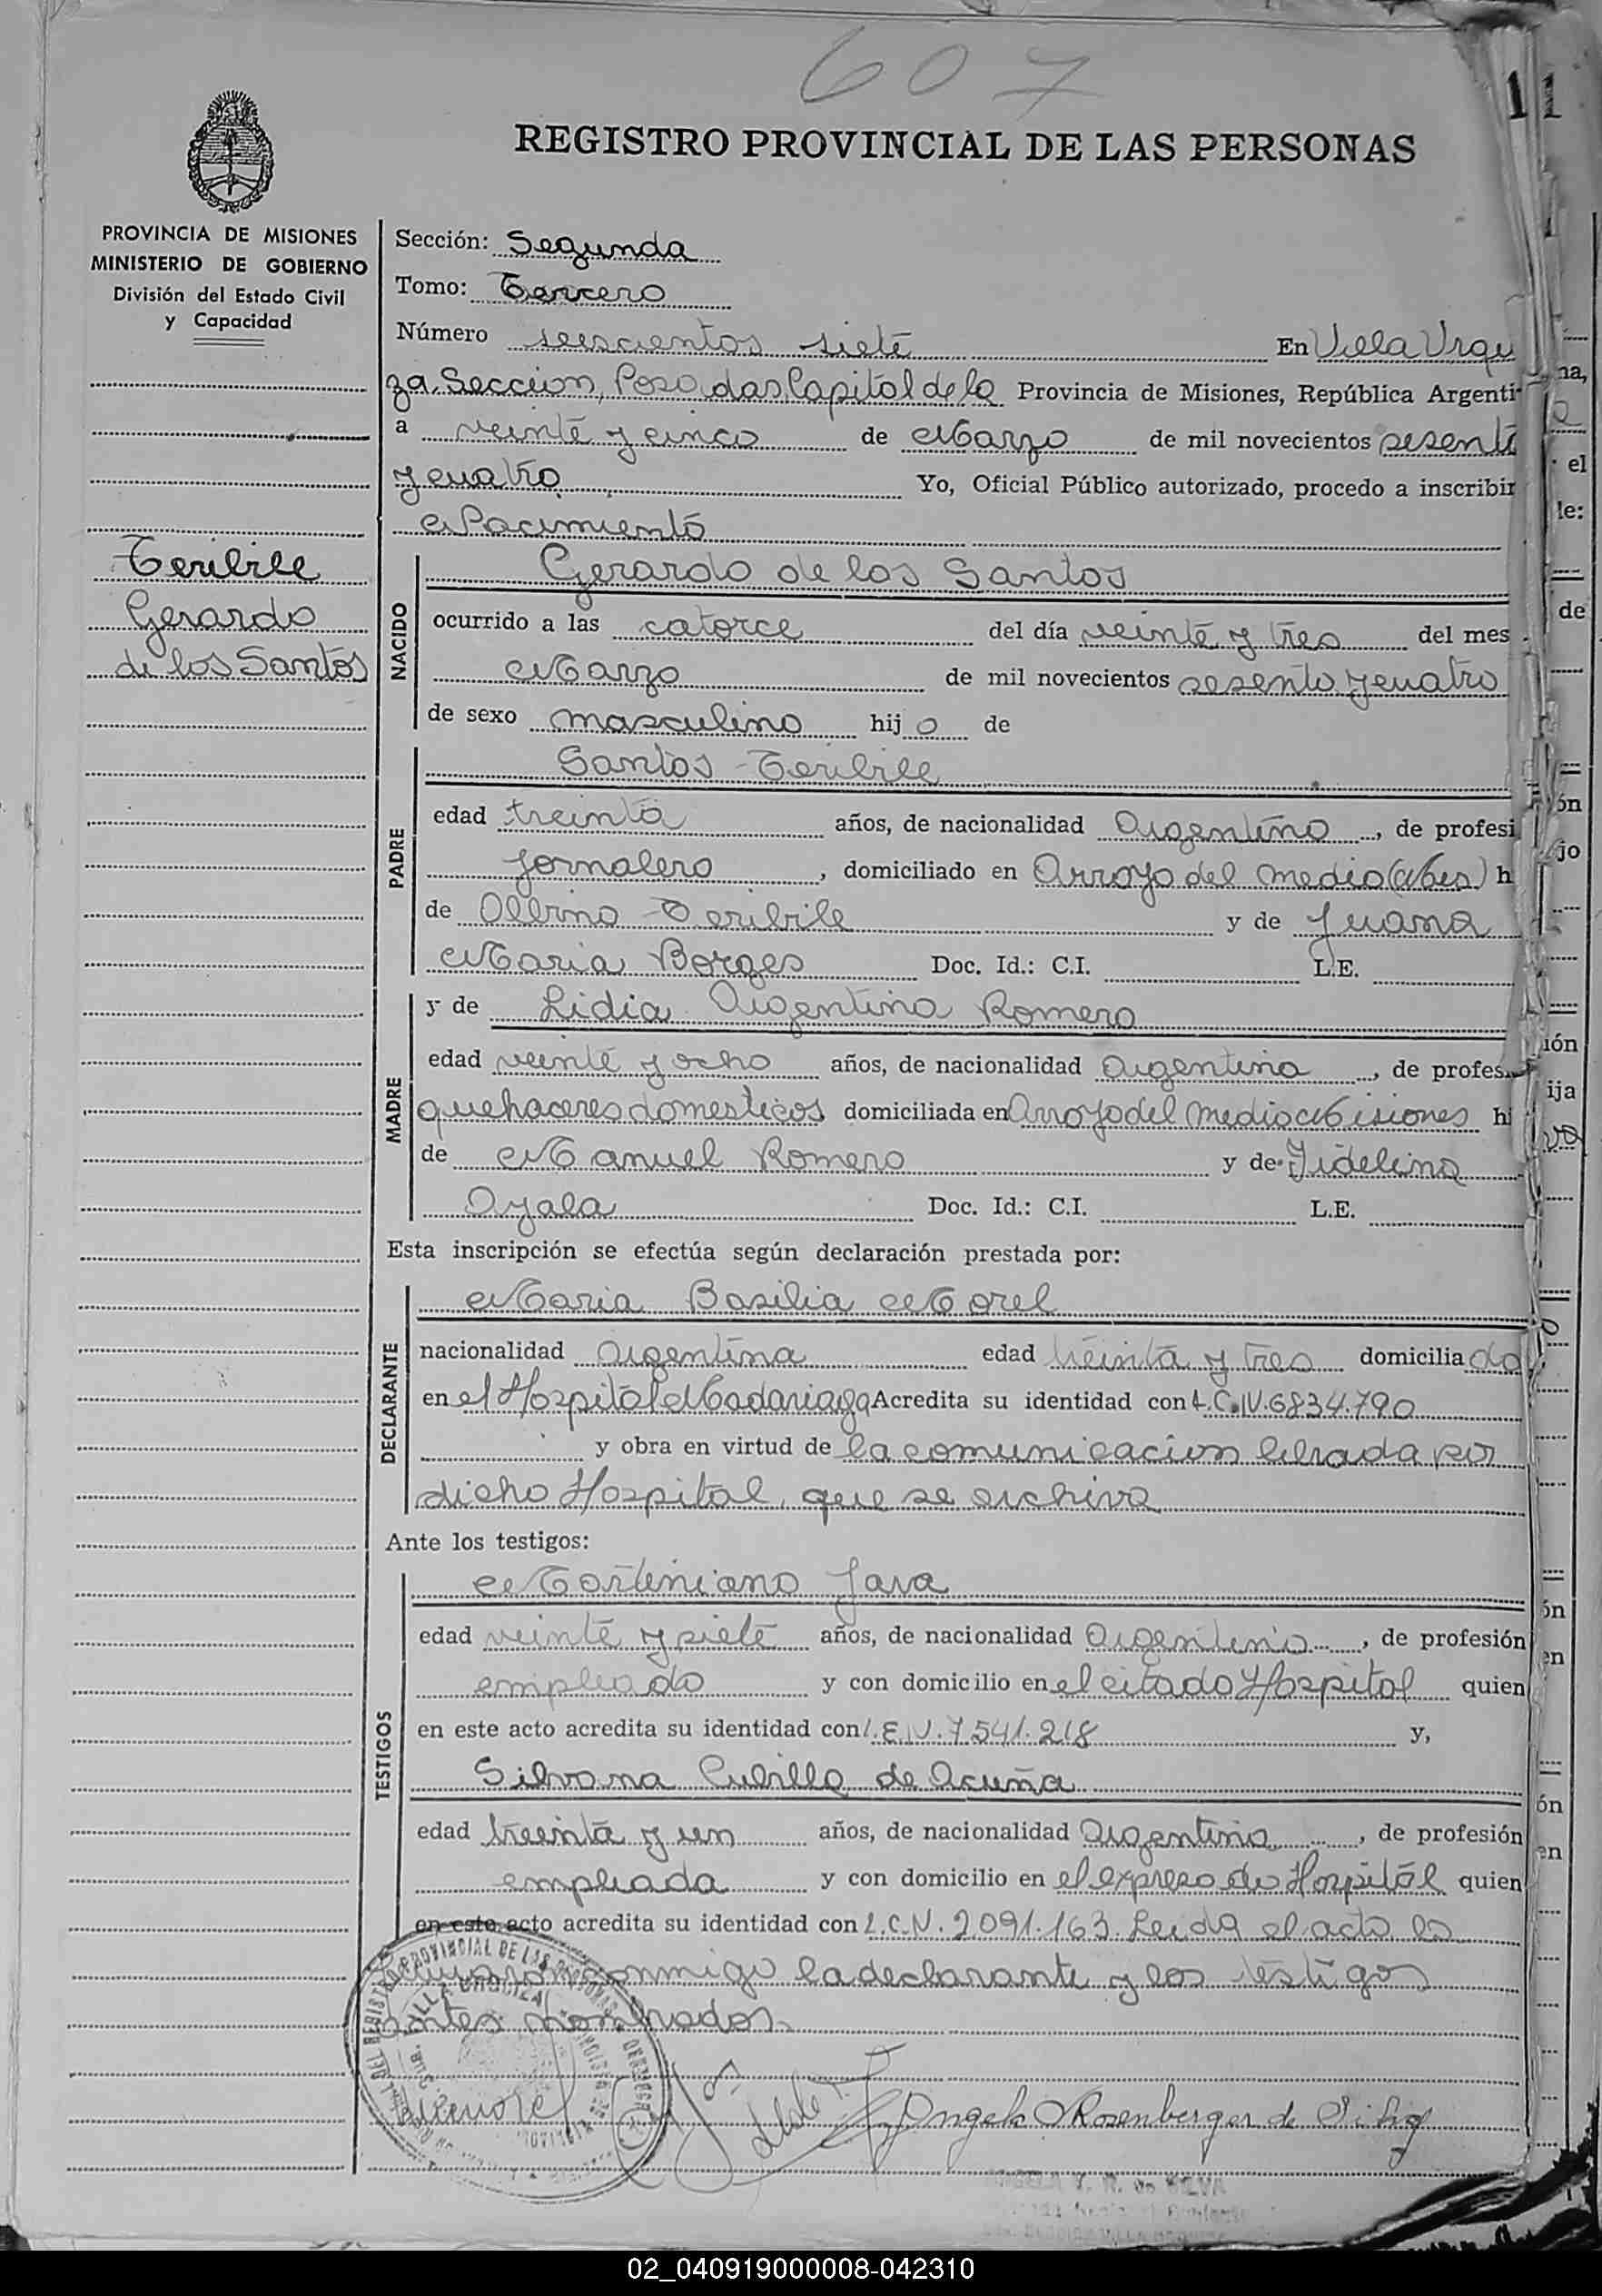 607
11
REGISTRO PROVINCIAL DE LAS PERSONAS
PROVINCIA DE MISIONES
MINISTERIO DE GOBIERNO
División del Estado Civil
y Capacidad
Sección: Segunda
Tomo: Tercero
Número seiscientos siete En Villa Urqui
za, Seccion, Posadas, Capital de la Provincia de Misiones, República Argenti
a veinte y cinco de Marzo de mil novecientos sesenta
y cuatro Yo, Oficial Público autorizado, procedo a inscribir
Nacimiento
Teribile
Gerardo
de los Santos
NACIDO
Gerardo de los Santos
ocurrido a las catorce del día veinte y tres del mes
Marzo de mil novecientos sesenta y cuatro
de sexo masculino hijo de
PADRE
Santos Teribile
edad treinta años, de nacionalidad Argentino, de profesi
Jornalero, domiciliado en Arroyo del Medio (Mes) h
de Teribile y de Juana
Maria Borges Doc. Id.: C.I. L.E.
MADRE
y de Lidia Argentina Romero
edad veinte y ocho años, de nacionalidad Argentina, de profes
quehaceres domesticos domiciliada en Arroyo del Medio Misiones hi
de Manuel Romero y de Fidelina
Ayala Doc. Id.: C.I. L.E.
Esta inscripción se efectúa según declaración prestada por:
DECLARANTE
Maria Basilia Morel
nacionalidad Argentina edad treinta y tres domiciliada
en el Hospital Madariaga Acredita su identidad con L.C.N.6834.790
y obra en virtud de la comunicacion librada por
dicho Hospital, que se archiva
Ante los testigos:
TESTIGOS
Martiniano Java
edad veinte y siete años, de nacionalidad Argentino, de profesión
empleado y con domicilio en el citado Hospital quien
en este acto acredita su identidad con L.E.N.7541.218 y,
Silvana Cubilla de Acuña
edad treinta y un años, de nacionalidad Argentina, de profesión
empleada y con domicilio en el expresado Hospital quien
en este acto acredita su identidad con L.C.N.2091.163. Leida el acta la
firmaron conmigo la declarante y los testigos
antes nombrados.
Angela Rosenberger de Silva
02_040919000008-042310